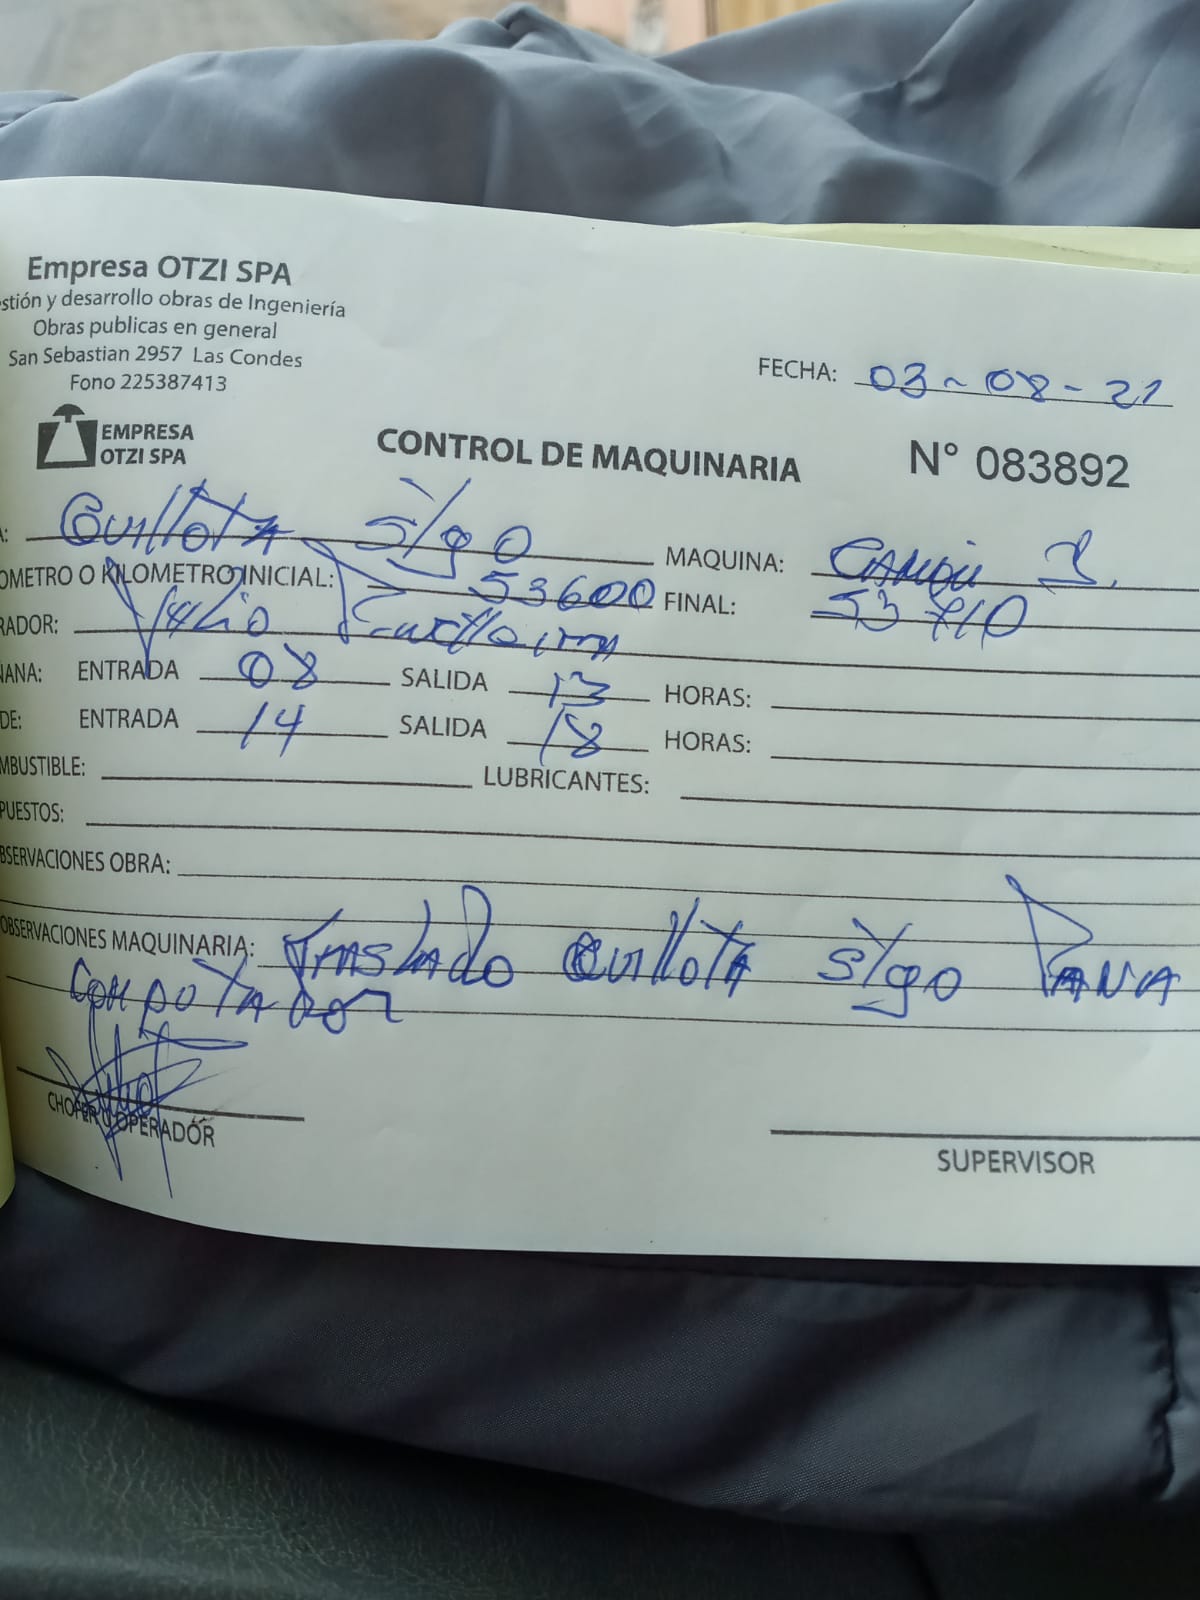 Empresa OTZI SPA
stión y desarrollo obras de Ingeniería
Obras publicas en general
San Sebastian 2957 Las Condes
Fono 225387413
FECHA: 03-08-21
EMPRESA
OTZI SPA
CONTROL DE MAQUINARIA
N° 083892
A: Quillota S/go MAQUINA: 
OMETRO O KILOMETRO INICIAL: 53600 FINAL: 53710
RADOR: Julio
ÑANA: ENTRADA 08 SALIDA 13 HORAS:
DE: ENTRADA 14 SALIDA 18 HORAS:
MBUSTIBLE: LUBRICANTES:
PUESTOS:
BSERVACIONES OBRA:
OBSERVACIONES MAQUINARIA: Traslado Quillota S/go Pana
Computador
CHOFER U OPERADOR
SUPERVISOR